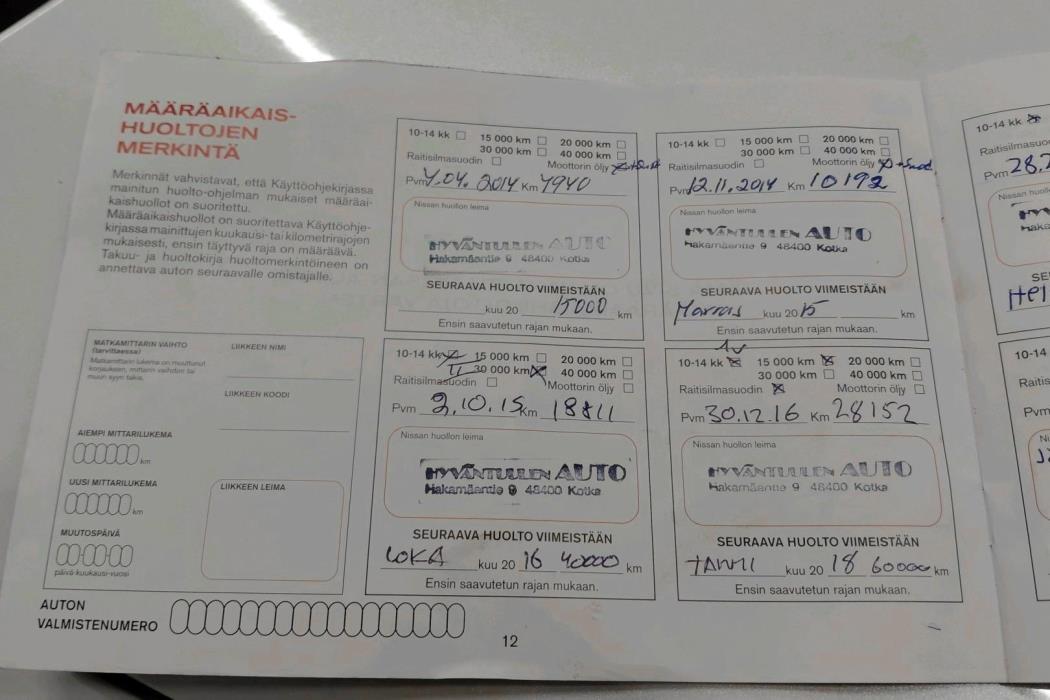 MÄÄRÄAIKAIS-
HUOLTOJEN
MERKINTÄ
Merkinnät vahvistavat, että Käyttöohjekirjassa
mainitun huolto-ohjelman mukaiset määräai-
kaishuollot on suoritettu.
Määräaikaishuollot on suoritettava Käyttöohje-
kirjassa mainittujen kuukausi- tai kilometrirajojen
mukaisesti, ensin täyttyvä raja on määräävä.
Takuu- ja huoltokirja huoltomerkintöineen on
annettava auton seuraavalle omistajalle.
10-14 kk 15 000 km 20 000 km
30 000 km 40 000 km
Raitisilmasuodin Moottorin öljy
Pvm 7.04.2014 Km 7940
Nissan huollon leima
HYVÄNTUULEN AUTO
Hakamäentie 9 48400 Kotka
SEURAAVA HUOLTO VIIMEISTÄÄN
kuu 20 15000 km
Ensin saavutetun rajan mukaan.
10-14 kk 15 000 km 20 000 km
30 000 km 40 000 km
Raitisilmasuodin Moottorin öljy +Suod.
Pvm 12.11.2014 Km 10192
Nissan huollon leima
HYVÄNTUULEN AUTO
Hakamäentie 9 48400 Kotka
SEURAAVA HUOLTO VIIMEISTÄÄN
Marras kuu 20 15 km
Ensin saavutetun rajan mukaan.
10-14 kk 15 000 km 20 000 km
30 000 km 40 000 km
Raitisilmasuodin Moottorin öljy
Pvm 2.10.15 Km 18811
Nissan huollon leima
HYVÄNTUULEN AUTO
Hakamäentie 9 48400 Kotka
SEURAAVA HUOLTO VIIMEISTÄÄN
LOKA kuu 20 16 40000 km
Ensin saavutetun rajan mukaan.
1v
10-14 kk 15 000 km 20 000 km
30 000 km 40 000 km
Raitisilmasuodin Moottorin öljy
Pvm 30.12.16 Km 28152
Nissan huollon leima
HYVÄNTUULEN AUTO
Hakamäentie 9 48400 Kotka
SEURAAVA HUOLTO VIIMEISTÄÄN
TAMMI kuu 20 18 60000 km
Ensin saavutetun rajan mukaan.
MATKAMITTARIN VAIHTO
(tarvittaessa)
Matkamittarin lukema on muuttunut
korjauksen, mittarin vaihdon tai
muun syyn takia.
AIEMPI MITTARILUKEMA
km
UUSI MITTARILUKEMA
km
MUUTOSPÄIVÄ
päivä-kuukausi-vuosi
LIIKKEEN NIMI
LIIKKEEN KOODI
LIIKKEEN LEIMA
AUTON
VALMISTENUMERO
12
10-14 kk
Pvm 28.2
10-14
Pvm